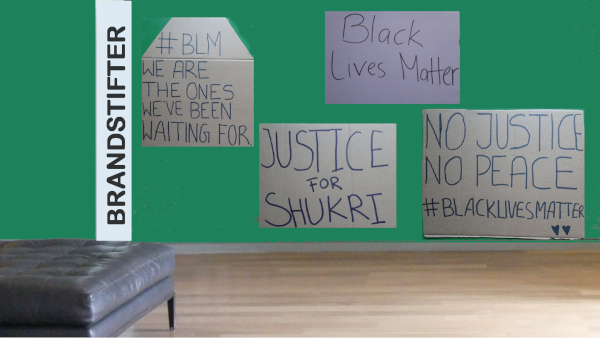 BRANDSTIFTER
#BLM
WE ARE
THE ONES
WE'VE BEEN
WAITING FOR.
Black
Lives Matter
JUSTICE
FOR
SHUKRI
NO JUSTICE
NO PEACE
#BLACKLIVESMATTER